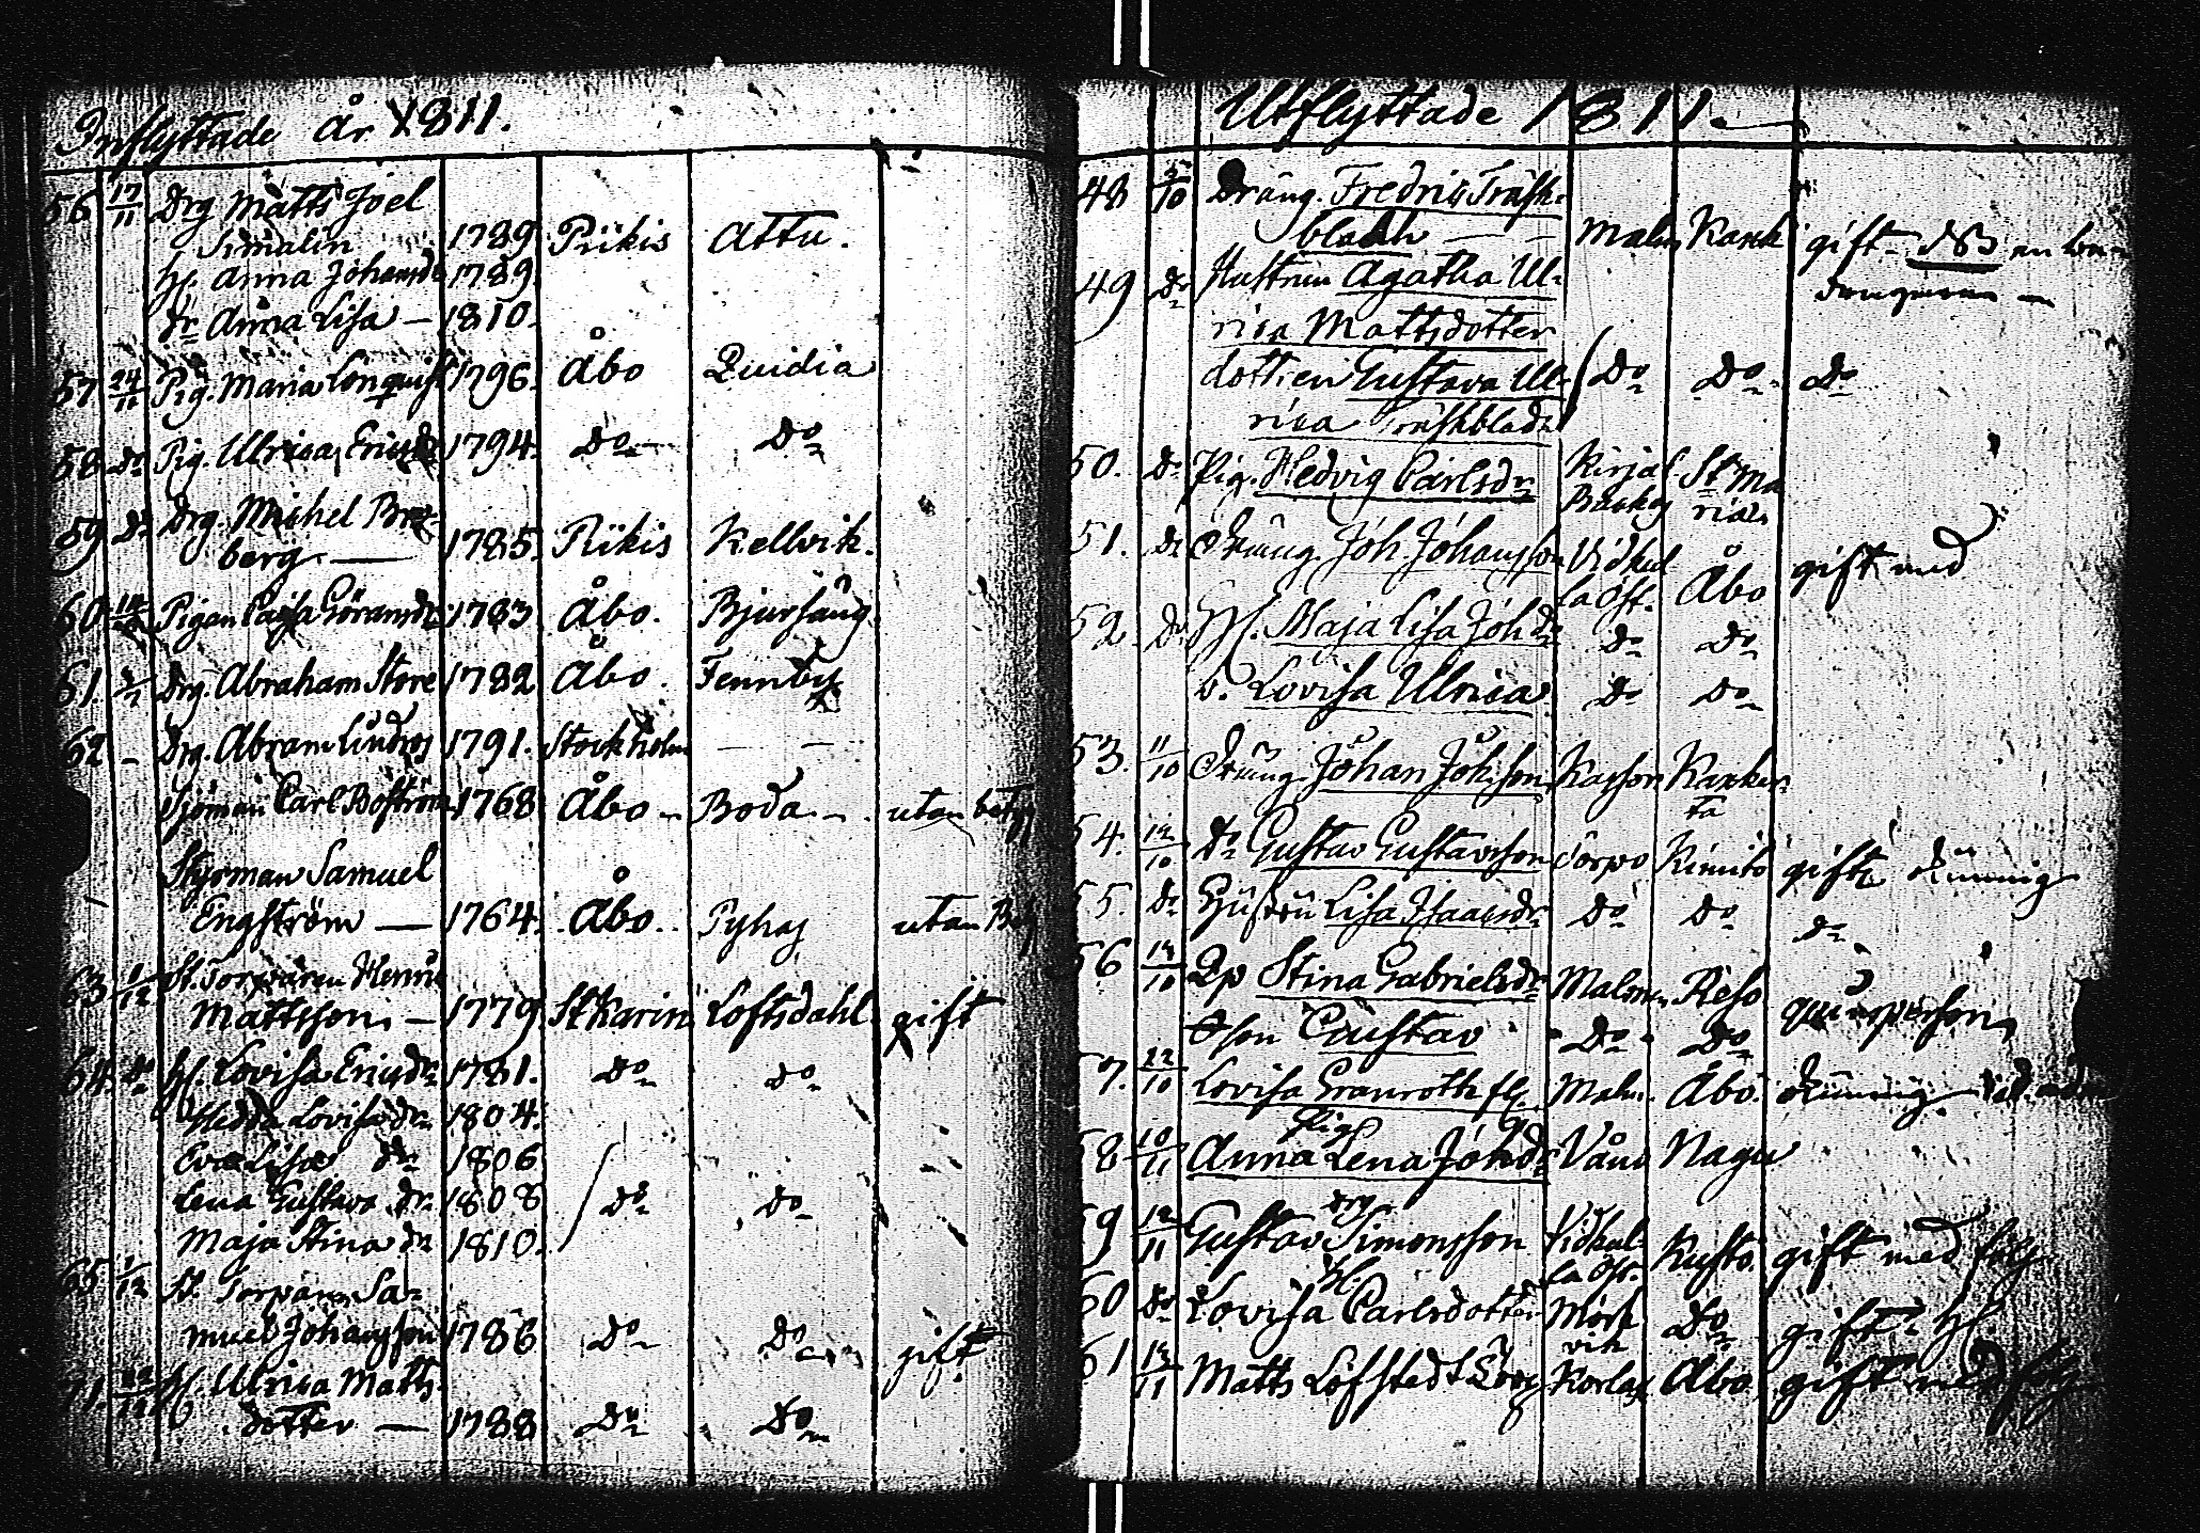 Inflyttade år 1811.
56 17/11 Drg Matts Joel
Simalin 1789 Piikis Attu.
H. Anna Johansdr 1789.
dr Anna Lisa — 1810.
57 24/11 Pig. Maria Lönquist 1796. Åbo Quidia
58 Do Pig. Ulrica Ericsdr 1794. Do Do
59 Do Drg. Michel Bro-
berg — 1785. Piikis Kellvik.
60 Pigan Caisa Göransdr 1783 Åbo. Bjursäng
61. Drg. Abraham Store 1782 Åbo. Fennby
62 – Drg. Abram Lindros 1791. Stockholm — —
Sjöman Carl Boström 1768 Åbo – Boda – utan
Styrman Samuel
Engström — 1764. Åbo. Pyhaj utan
63 1/12 St. Torparen Henric
Mattsson – 1779 St Karin Loftsdahl gift
64. Do H. Lovisa Ericsdr 1781. Do Do
Hedda Lovisa dr 1804.
Eva Lisa dr 1806
Lena Gustava dr. 1808 Do Do
Maja Stina dr 1810.
65 1/12 St. Torparen Sa-
muel Johansson 1786 Do Do gift
H. Ulrica Matts-
dotter — 1788 Do Do
Utflyttade 1811.
48 Dräng. Fredric Träsk-
bladh — Malm Kark gift
49 Do Hustrun Agatha Ul-
rica Mattsdotter
dottren Gustava Ul- Do Do Do
rica Träskbladh
50. Do Pig. Hedvig Carlsdr Kirjal St Ma
Backg rian
51. Do Dräng. Joh. Johansson Vidkul Åbo gift med
la Öst.
52. Do H. Maja Lisa Johdr Do Do
d. Lovisa Ulrica Do Do
53. 11/10 Dräng. Johan Johsson Kasson Karker
ta
54. 12/10 Do Gustav Gustavsson Sorpo Kimito gift
55. Do Hustru Lisa Isaacsdr Do Do Do
56 Qp Stina Gabrielsdr Malmen Reso
Oson Gustav Do Do
57. 22/10 Lovisa Granroth fl. Malm. Åbo.
Pig
58 10/11 Anna Lena Johdr Våno Nagu
drg
59 12/11 Gustav Simonsson Vidkul- Kusto. gift med följ
la Öst.
H.
60 Do Lovisa Carlsdotter Mörk Do gift H.
vik
61 Matts Löfstedt Korlax Åbo gift med